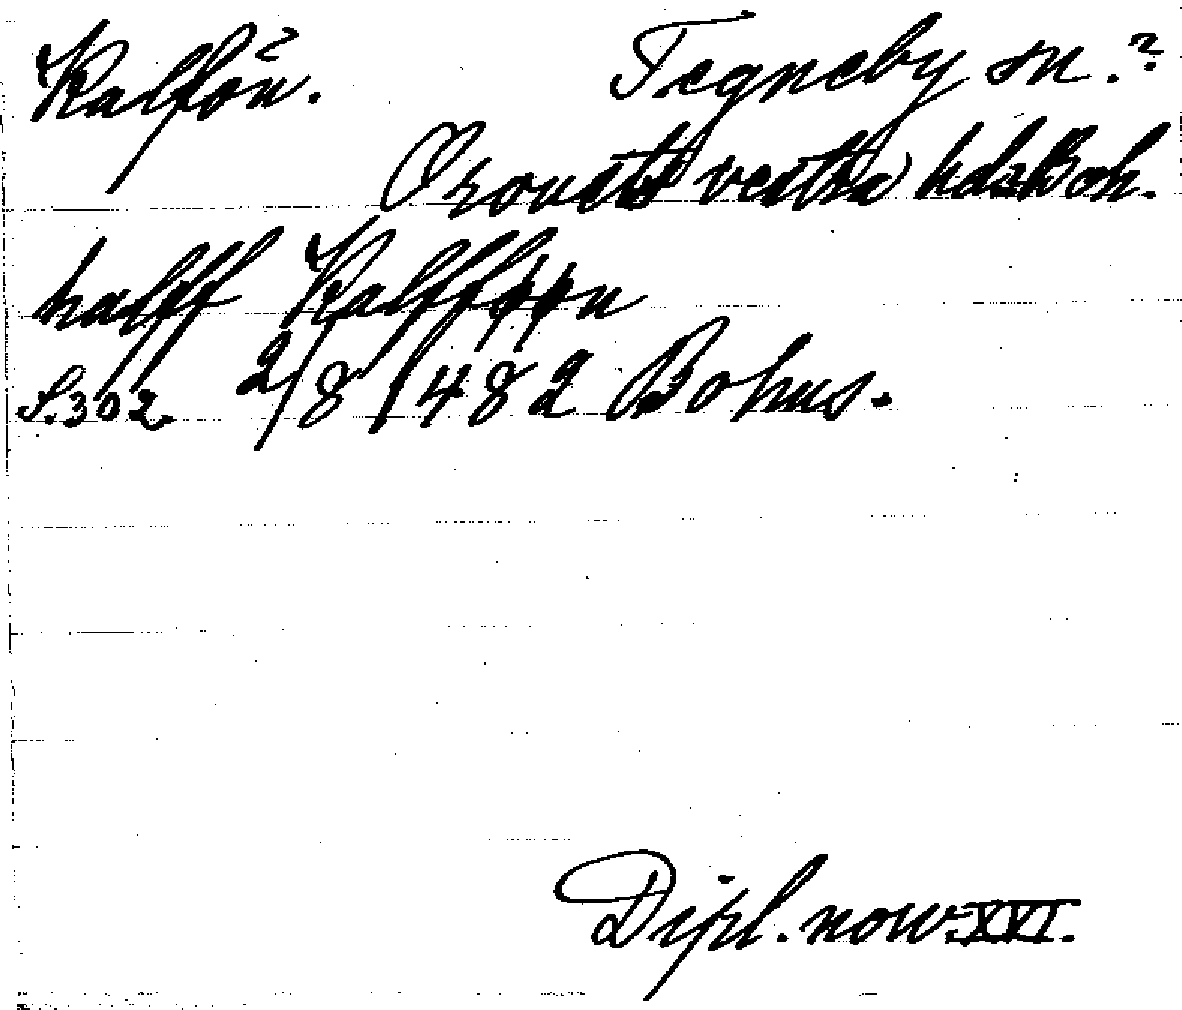 Kalfön.? Tegneby sn.?
Orousts vestra hds Boh.
halff Kalfføøn
S. 302. 2/8 1482 Bohus.
Dipl. now. XVI.